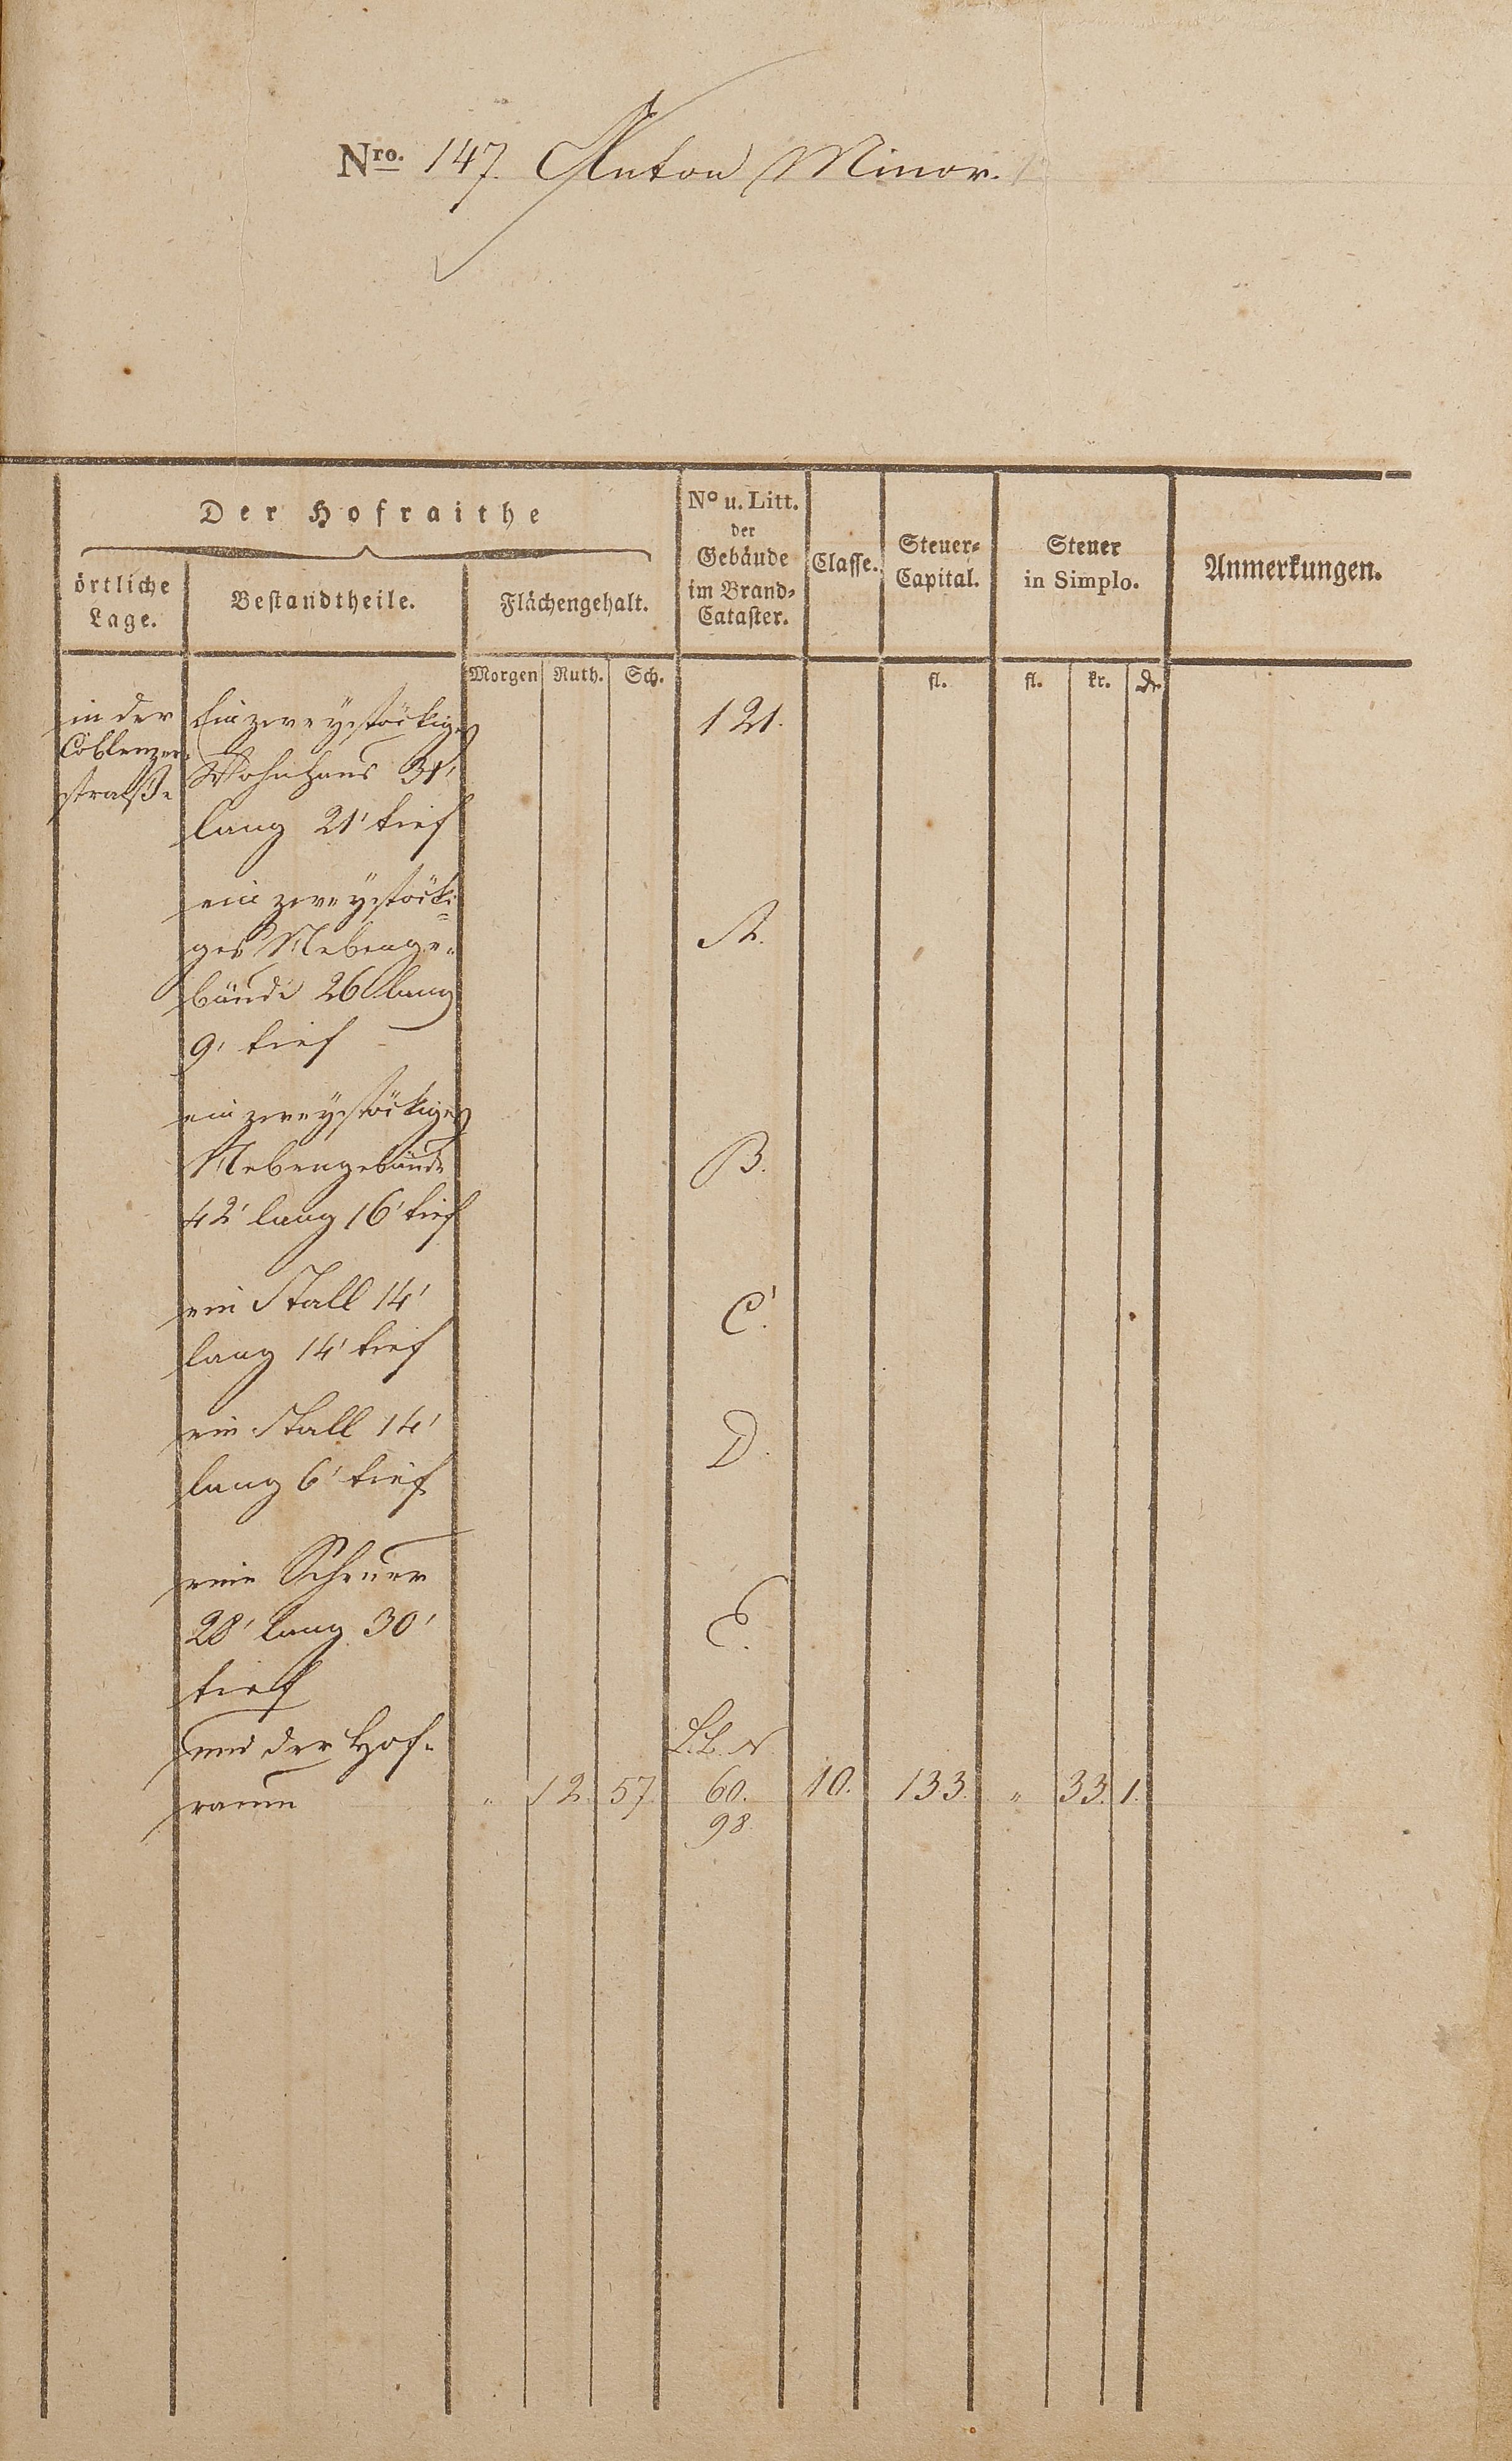 Nro. 147. Anton Minor.
Der Hofraithe
örtliche
Lage.
Bestandtheile.
Flächengehalt.
No u. Litt.
der
Gebäude
im Brand-
Cataster.
Classe.
Steuer-
Capital.
Steuer
in Simplo.
Anmerkungen.
Morgen Ruth. Sch.
fl.
fl. kr. dr.
in der
Coblenzer-
straße
Ein zweystöckiges 121.
Wohnhaus 31'
lang 21' tief
ein zweystöcki-
ges Nebenge- A.
bäude 26' lang
9' tief
ein zweystöckiges
Nebengebäude B.
42' lang 16' tief
ein Stall 14' C.
lang 14' tief
ein Stall 14' D.
lang 6' tief
eine Scheuer
28' lang 30' E.
tief
und der Hof- L.B. N
raum " 12. 57. 60. 10. 133. " 33. 1.
98